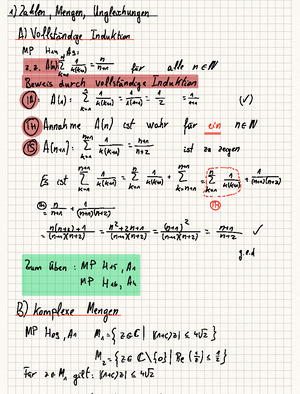 1) Zahlen, Mengen, Ungleichungen
A) Vollständige Induktion
MP H09, A3:
z.z. A(n) ∑_{k=1}^{n} 1/(k(k+1)) = n/(n+1) für alle n∈ℕ
Beweis durch vollständige Induktion
(IA): A(1): ∑ 1/(k(k+1)) = 1/(1(1+1)) = 1/2 = 1/(1+1) (✓)
(IH) Annahme A(n) ist wahr für ein n∈ℕ
(IS) A(n+1): ∑_{k=1}^{n+1} 1/(k(k+1)) = (n+1)/(n+2) ist zu zeigen
Es ist ∑_{k=1}^{n+1} 1/(k(k+1)) = ∑_{k=1}^{n} 1/(k(k+1)) + ∑_{k=n+1}^{n+1} = ∑_{k=1}^{n} 1/(k(k+1)) + 1/((n+1)(n+2))
(IH)
(IH) = n/(n+1) + 1/((n+1)(n+2))
= (n(n+2)+1)/((n+1)(n+2)) = (n²+2n+1)/((n+1)(n+2)) = (n+1)²/((n+1)(n+2)) = (n+1)/(n+2) ✓
q.e.d
Zum Üben: MP H05, A1
MP H06, A4
B) Komplexe Mengen
MP H09, A1 M₁ = { z∈ℂ | |(1+i)z| ≤ 4√2 }
M₂ = { z∈ℂ\{0} | Re(1/z) ≤ 1/2 }
Für z∈M₁ gilt: |(1+i)z| ≤ 4√2